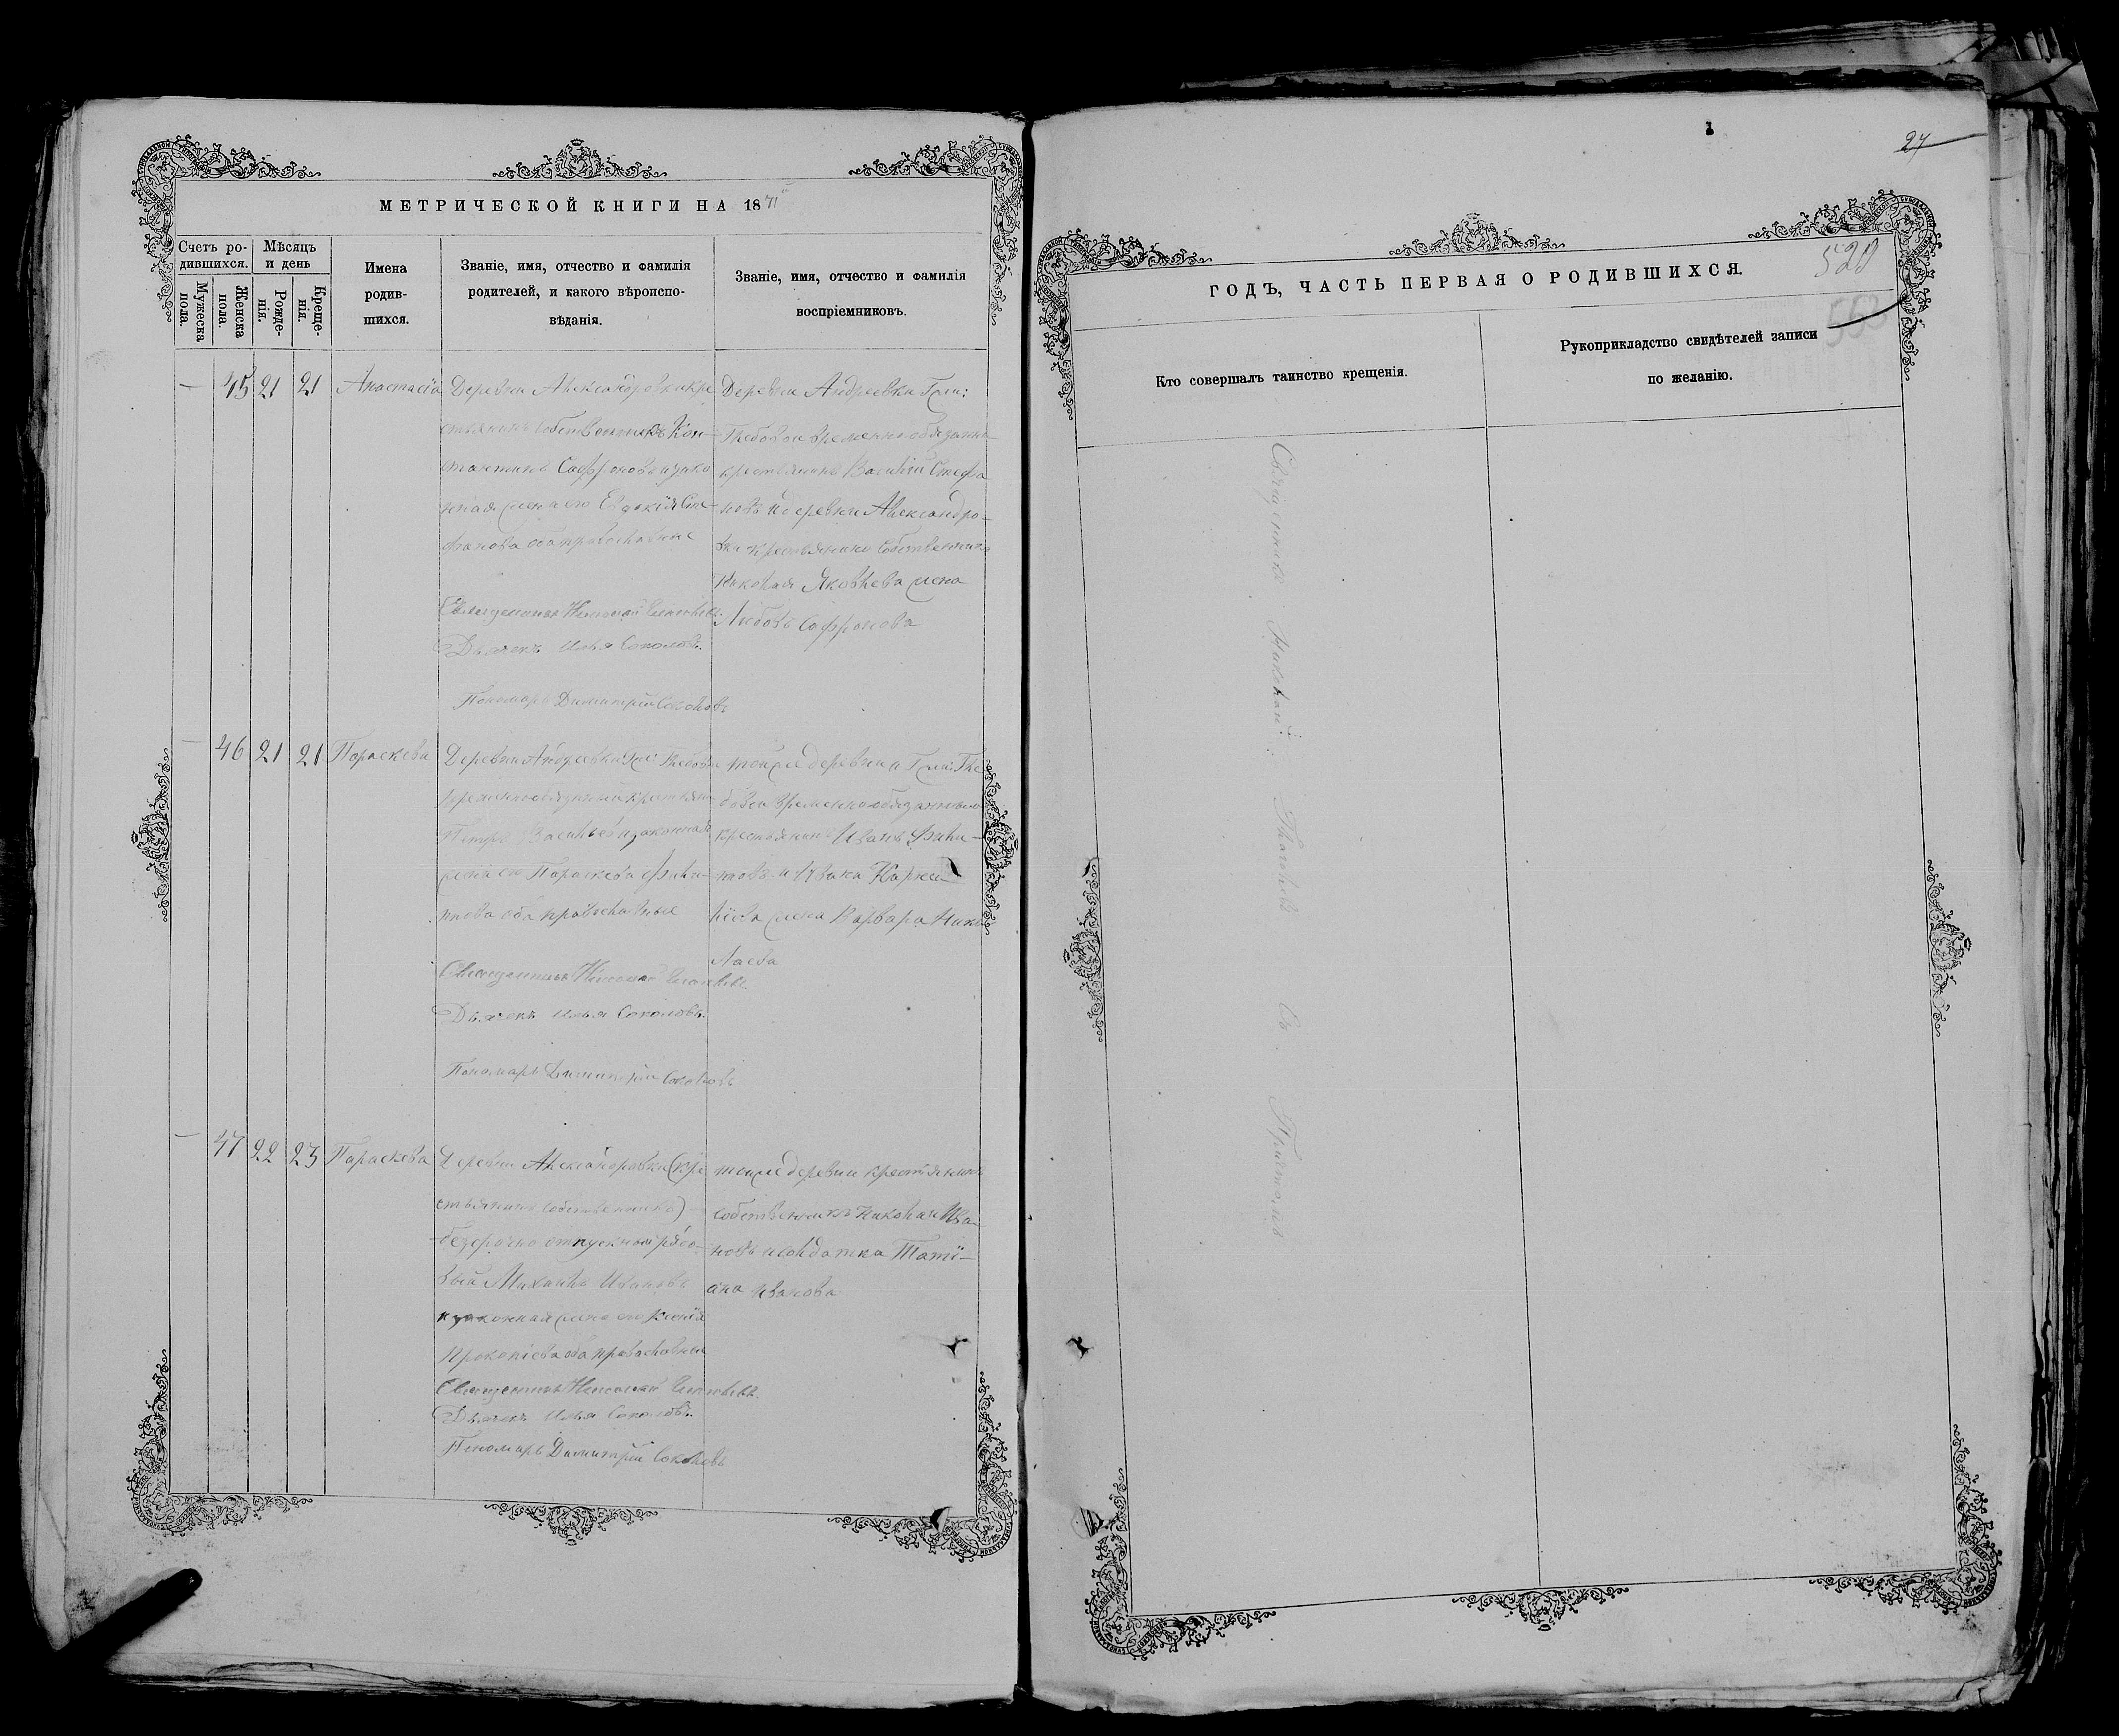 МЕТРИЧЕСКОЙ КНИГИ НА 1871
Счетъ ро-
дившихся.
Мѣсяцъ
и день
Мужеска
пола.
Женска
пола.
Рожде-
нія.
Креще-
нія.
Имена
родив-
шихся.
Званіе, имя, отчество и фамилія
родителей, и какого вѣроиспо-
вѣданія.
Званіе, имя, отчество и фамилія
воспріемниковъ.
— 45 21 21 Анастасія
Деревни Александровки кре
стьянинъ собственникъ Кон-
стантинъ Софроновъ и зако
нная жена его Евдокія Сте-
фанова оба православные
Священникъ Николай
Дьячекъ Илья Соколовъ.
Пономарь Димитрій Соколовъ
Деревни Андреевки Гжи:
Глебовой временно обязанный
крестьянинъ Василій Стефа
новъ и деревни Александро-
вки крестьянина собственника
Николая Яковлева жена
Любовь Софронова
— 46 21 21 Параскева
Деревни Андреевки Гжи: Глебовой
временнообязанный крестьянинъ
Петръ Васильевъ и законная
жена его Параскева Фили-
пова оба православные
Священникъ Николай
Дьячекъ Илья Соколовъ.
Пономарь Димитрій Соколовъ
тойже деревни Гжи: Гле
бовой временнообязанный
крестьянинъ Иванъ Фили-
повъ и
жена Варвара Нико
лаева
— 47 22 23 Параскева
Деревни Александровки (кре
стьянинъ собственникъ)
безсрочно отпускной рядо-
вый Михаилъ Ивановъ
и законная жена его Ксенія
Прокопіева оба православные
Священникъ Николай
Дьячекъ Илья Соколовъ.
Пономарь Димитрій Соколовъ
тойже деревни крестьянинъ
собственникъ Николай Ива-
новъ и солдатка Татіа-
на Иванова
27
520
563
ГОДЪ, ЧАСТЬ ПЕРВАЯ О РОДИВШИХСЯ.
Кто совершалъ таинство крещенія.
Рукоприкладство свидѣтелей записи
по желанію.
Священникъ Николай Съ Причтомъ